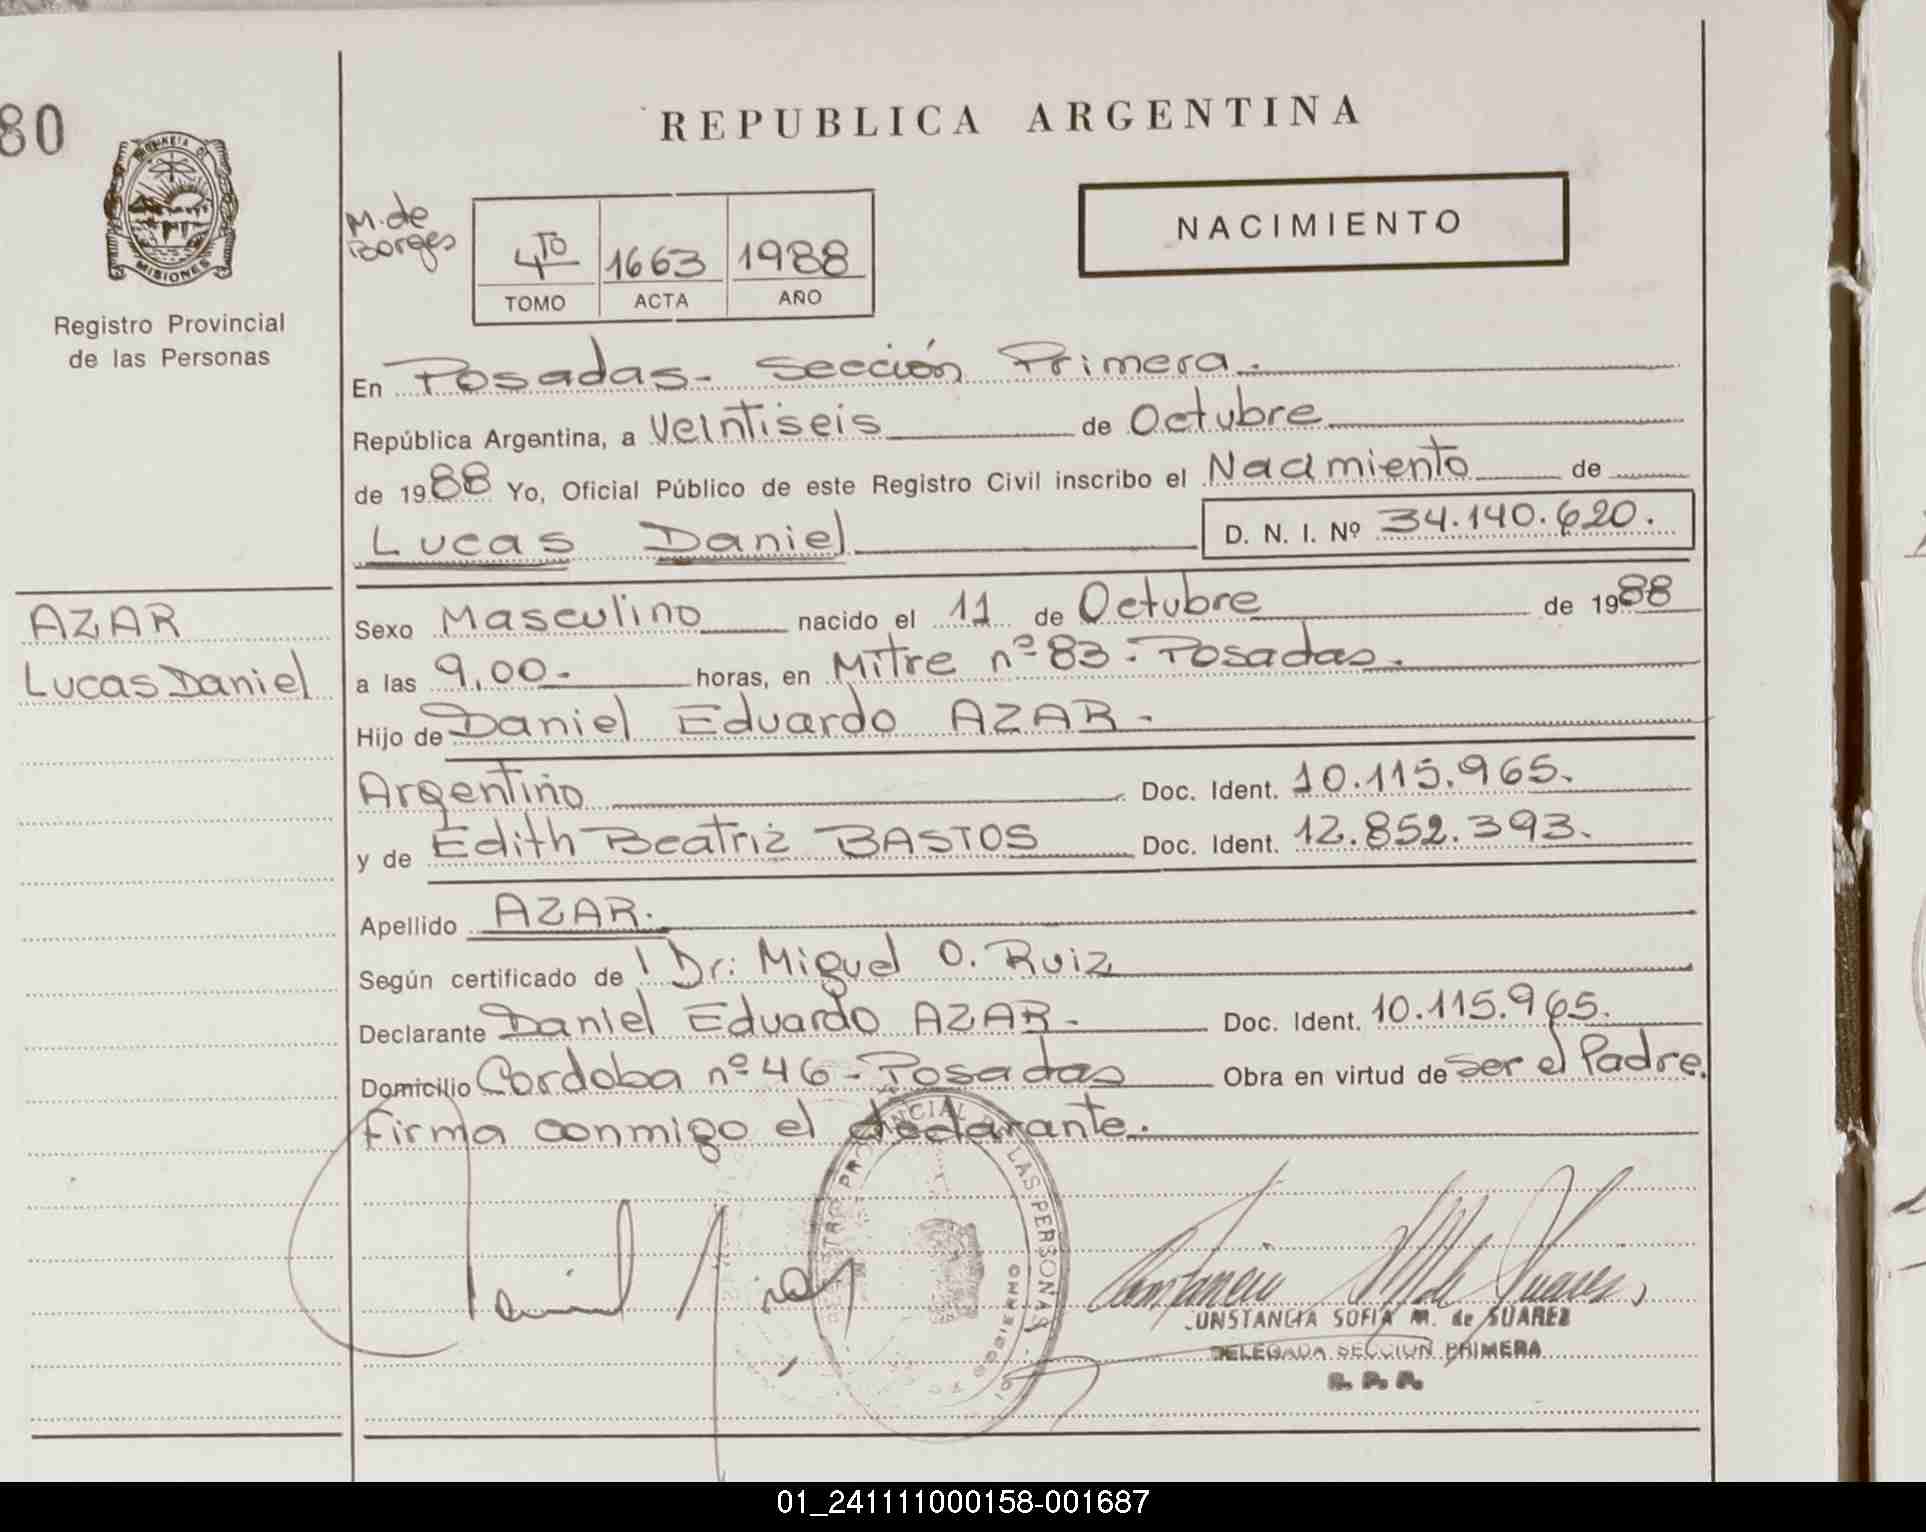 80
PROVINCIA DE
MISIONES
Registro Provincial
de las Personas
REPUBLICA ARGENTINA
M. de
Borges
4TO 1663 1988
TOMO ACTA AÑO
NACIMIENTO
En Posadas - Sección Primera.
República Argentina, a Veintiseis de Octubre
de 1988 Yo, Oficial Público de este Registro Civil inscribo el Nacimiento de
Lucas Daniel D. N. I. Nº 34.140.620.
AZAR
Lucas Daniel
Sexo Masculino nacido el 11 de Octubre de 1988
a las 9,00.- horas, en Mitre nº 83. Posadas.
Hijo de Daniel Eduardo AZAR.-
Argentino Doc. Ident. 10.115.965.
y de Edith Beatriz BASTOS Doc. Ident. 12.852.393.
Apellido AZAR.
Según certificado de Dr: Miguel O. Ruiz
Declarante Daniel Eduardo AZAR.- Doc. Ident. 10.115.965.
Domicilio Cordoba nº 46 - Posadas Obra en virtud de ser el Padre.
Firma conmigo el declarante.
PROVINCIAL DE LAS PERSONAS
CONSTANCIA SOFIA M. de SUAREZ
DELEGADA SECCION PRIMERA
R. P. P.
01_241111000158-001687